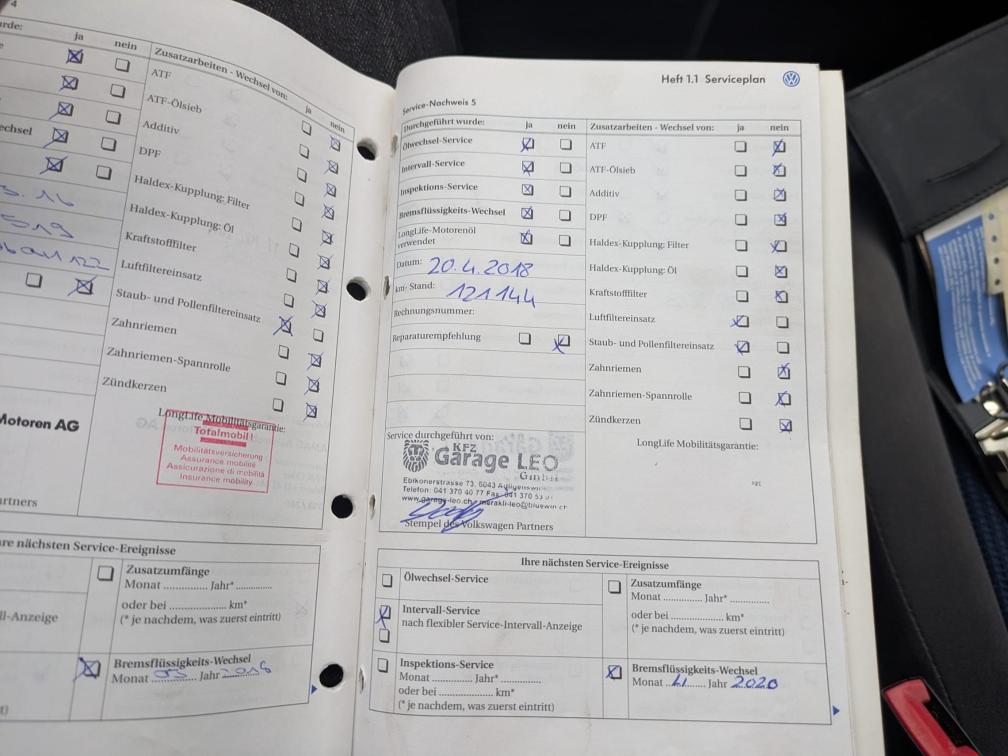 4
urde:
ja
nein
Zusatzarbeiten - Wechsel von:
ja
nein
ATF
ATF-Ölsieb
Additiv
DPF
Haldex-Kupplung: Filter
Haldex-Kupplung: Öl
Kraftstofffilter
Luftfiltereinsatz
Staub- und Pollenfiltereinsatz
Zahnriemen
Zahnriemen-Spannrolle
Zündkerzen
echsel
Motoren AG
LongLife Mobilitätsgarantie:
Totalmobil!
Mobilitätsversicherung
Assurance mobilité
Assicurazione di mobilità
Insurance mobility
artners
hre nächsten Service-Ereignisse
Zusatzumfänge
Monat ............ Jahr* ............
oder bei ............ km*
(* je nachdem, was zuerst eintritt)
ll-Anzeige
Bremsflüssigkeits-Wechsel
Monat 03 Jahr 2018
Heft 1.1 Serviceplan
Service-Nachweis 5
Durchgeführt wurde:
ja
nein
Ölwechsel-Service
Intervall-Service
Inspektions-Service
Bremsflüssigkeits-Wechsel
LongLife-Motorenöl
verwendet
Datum: 20.4.2018
km- Stand: 121144
Rechnungsnummer:
Reparaturempfehlung
Zusatzarbeiten - Wechsel von:
ja
nein
ATF
ATF-Ölsieb
Additiv
DPF
Haldex-Kupplung: Filter
Haldex-Kupplung: Öl
Kraftstofffilter
Luftfiltereinsatz
Staub- und Pollenfiltereinsatz
Zahnriemen
Zahnriemen-Spannrolle
Zündkerzen
LongLife Mobilitätsgarantie:
Service durchgeführt von:
KFZ
Garage LEO
GmbH
Ebikonerstrasse 73, 6043
Telefon: 041 370 40 77 Fax: 041 370 53
www.garage-leo.ch / merakli-leo@bluewin.ch
Stempel des Volkswagen Partners
Ihre nächsten Service-Ereignisse
Ölwechsel-Service
Intervall-Service
nach flexibler Service-Intervall-Anzeige
Inspektions-Service
Monat ............ Jahr* ............
oder bei ............ km*
(* je nachdem, was zuerst eintritt)
Zusatzumfänge
Monat ............ Jahr* ............
oder bei ............ km*
(* je nachdem, was zuerst eintritt)
Bremsflüssigkeits-Wechsel
Monat Jahr 2020